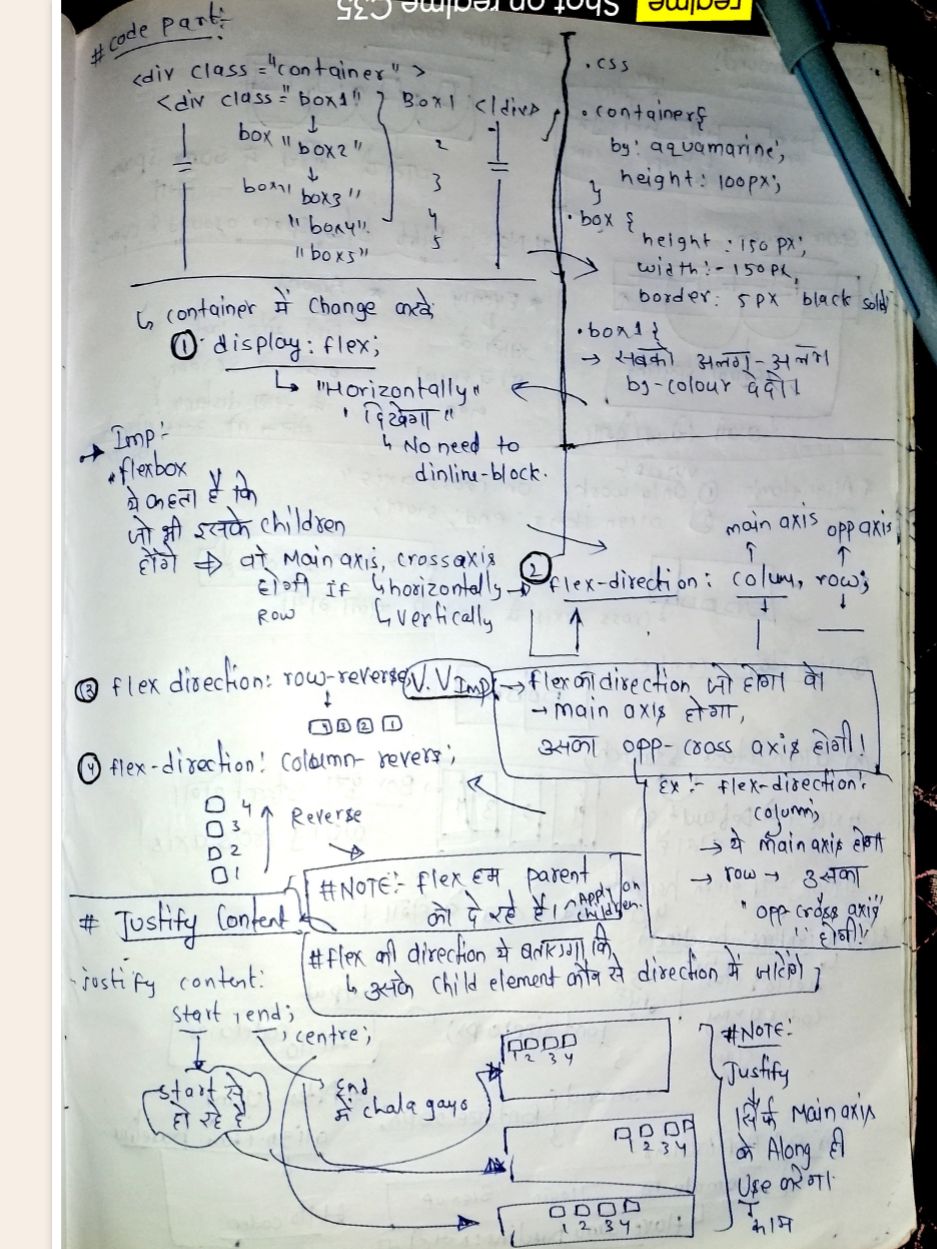 realme Shot on realme C35
# code part:-
<div class="container">
<div class="box1" Box1 </div>
box "box2" 2
box1 box3" 3
"box4". 4
"box5" 5
.css
. container{
by: aquamarine;
height: 100px;
}
. box {
height : 150 px;
width:- 150px,
border: 5px black solid
. box1 {
→ सबको अलग-अलग
by-colour दे दो।
↳ container में change करके
① display: flex;
↳ "Horizontally"
"दिखेगा"
↳ No need to
dinline-block.
→ Imp:-
. flexbox
ये कहता है कि
जो भी इसके children
होंगे → वो Main axis, cross axis
होगी If ↳ horizontally
Row ↳ vertically
main axis opp axis
② flex-direction: colum, row;
③ flex direction: row-reverse;
4 3 2 1
V.V Imp → flex का direction जो होगा वो
→ main axis होगा,
उसका opp- cross axis होगी!
④ flex-direction: column- revers;
4
3 Reverse
2
1
Ex:- flex-direction:
column;
→ ये main axis होगा
→ row → उसका
"opp cross axis"
होगी!
#NOTE:- flex हम parent
को दे रहे हैं। Apply on
children.
# Justify Content
#flex की direction ये बताएगा कि
↳ उसके child element कौन से direction में जाएंगे
- jostify content:
start, end;
, centre;
start से
हो रहे है
End
में chala gaya
1 2 3 4
1 2 3 4
1 2 3 4
#NOTE:
Justify
सिर्फ Main axis
के Along ही
Use करेगा।
काम